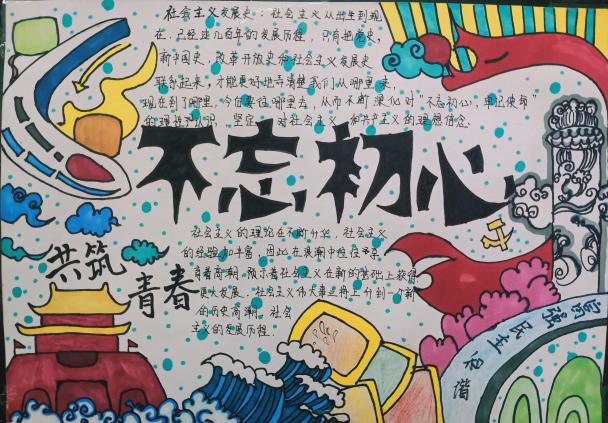 社会主义发展史：社会主义从出生到现
在，已经过几百年的发展历程，只有把党史，
新中国史，改革开放史和社会主义发展史
联系起来，才能更好地弄清楚我们从哪里来
现在到了哪里，今后要往哪里去，从而不断深化对“不忘初心，牢记使命”
的理性认识，坚定 对社会主义 和共产主义的理想信念.
不忘初心
社会主义的理论在不断升华，社会主义
的经验加丰富，因此在浪潮中
着高潮，预示着社会主义在新的基础上获得
更大发展，社会主义伟大事业将上升到一个新
的历史高潮，社会
主义的发展历程.
共筑
青春
富强
民主
和谐